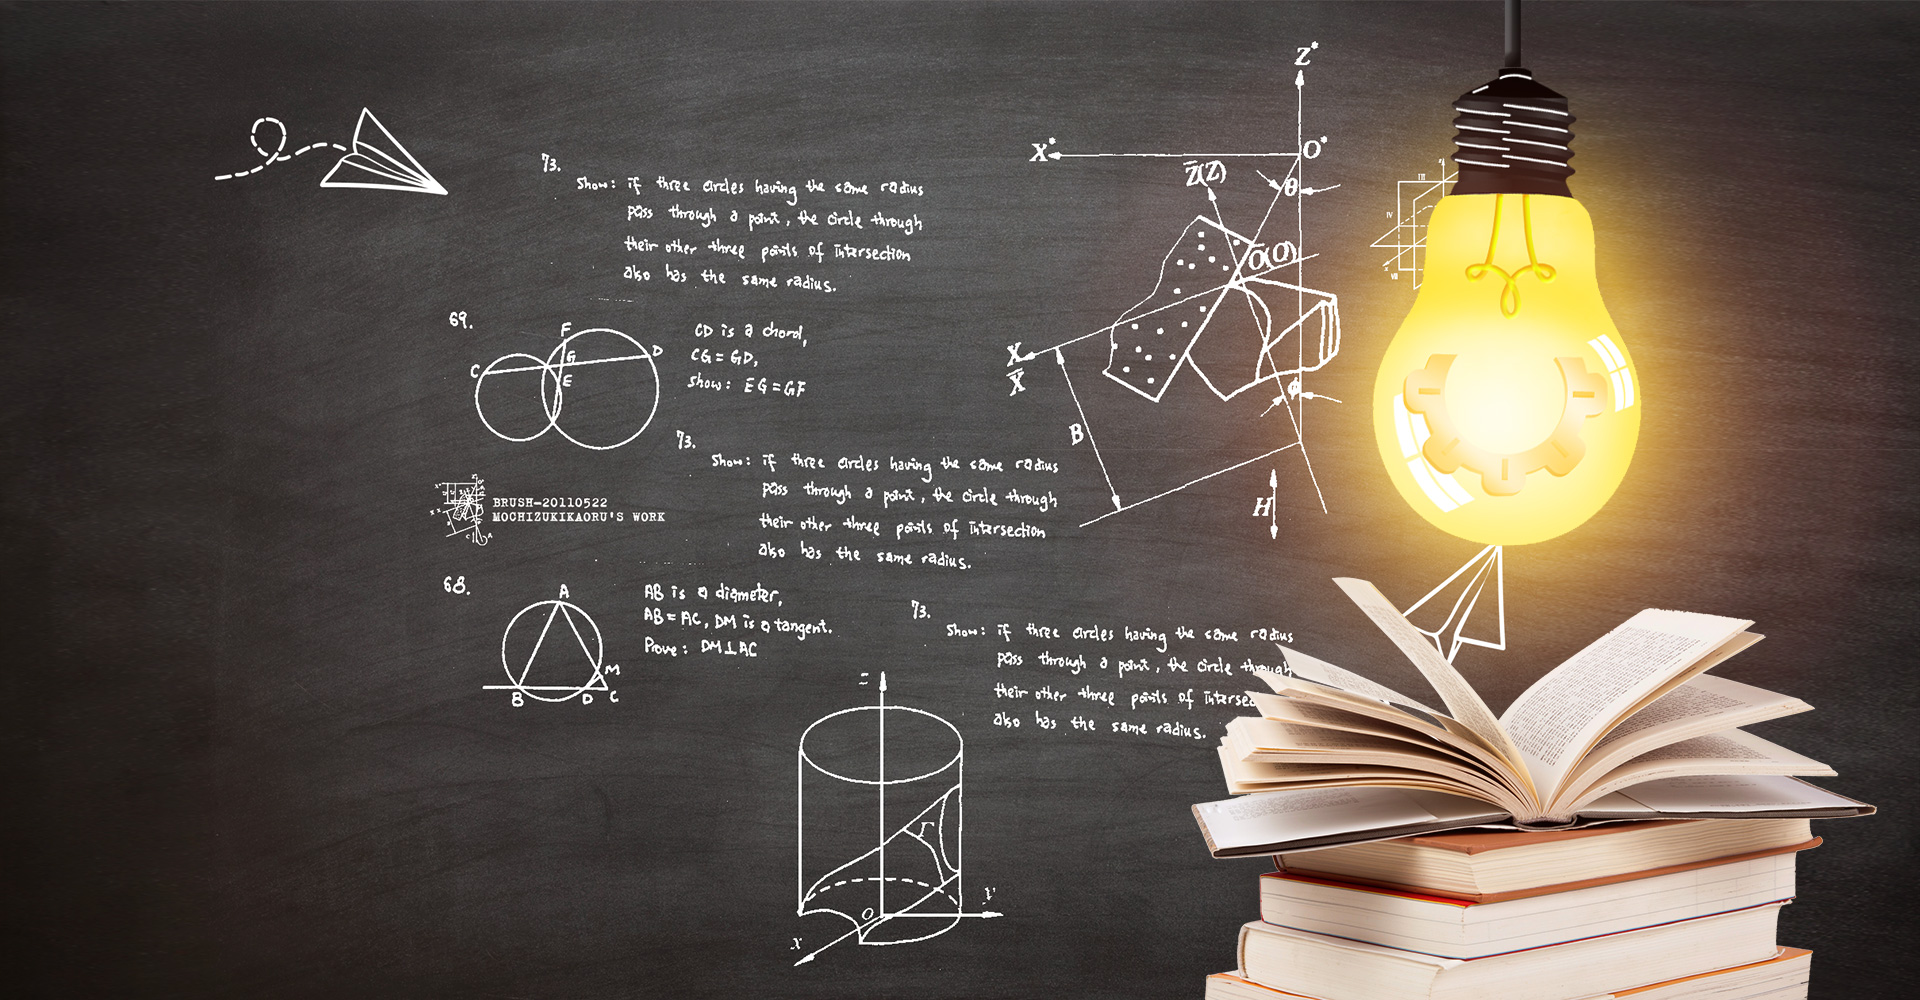 73.
Show: if three circles having the same radius
pass through a point, the circle through
their other three points of intersection
also has the same radius.
69.
CD is a chord,
CG = GD,
Show: EG = GF
C
F
G
E
D
73.
Show: if three circles having the same radius
pass through a point, the circle through
their other three points of intersection
also has the same radius.
BRUSH-20110522
MOCHIZUKIKAORU'S WORK
68.
AB is a diameter,
AB = AC, DM is a tangent.
Prove: DM⊥AC
A
B
D
M
C
73.
Show: if three circles having the same radius
pass through a point, the circle through
their other three points of interse
also has the same radius.
Z*
X*
O*
Z̅(Z)
θ
O̅(O)
X
X̅
ϕ
B
H
III
IV
VII
Γ
O
X
Y